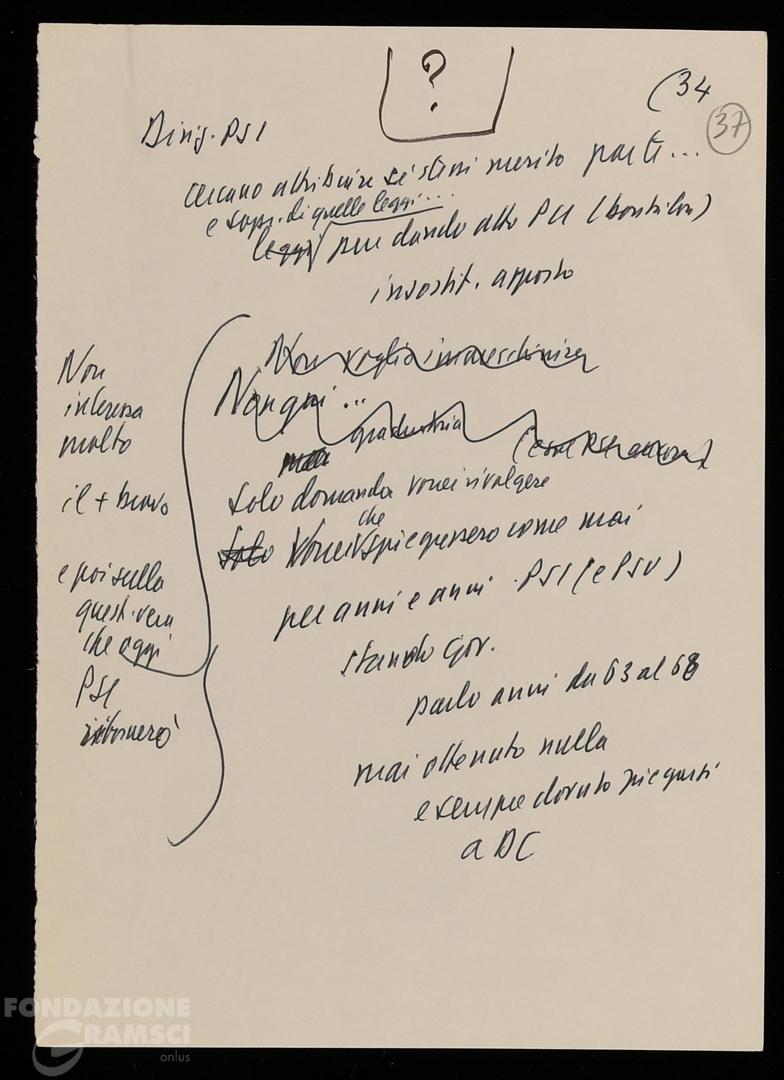 ?
(34
37
Dirig. PSI
cercano attribuire sé stessi merito parte...
e sopr. di quelle leggi...
leggi pur dando atto PCI (bontà loro)
insostit. apporto
Non voglio immeschinire
Non qui...
graduatoria
ma
Solo domanda vorrei rivolgere
Solo Vorrei che spiegassero come mai
per anni e anni PSI (e PSU)
stando Gov.
parlo anni da 63 al 68
mai ottenuto nulla
e sempre dovuto piegarsi
a DC
Non
interessa
molto
il + bravo
e poi sulla
quest. vera
che oggi
PSI
ritornerò
FONDAZIONE
GRAMSCI
onlus